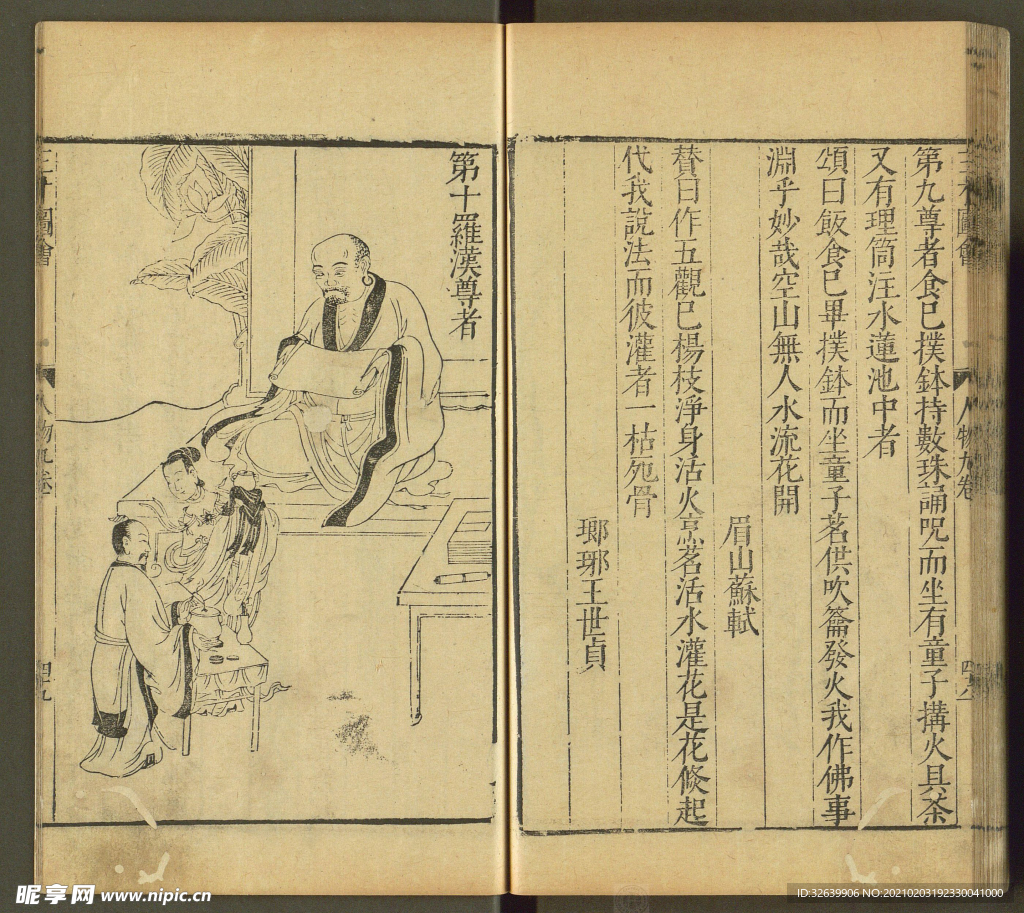 第九尊者食已撲鉢持數珠誦呪而坐有童子搆火具茶
又有理筒注水蓮池中者
頌曰飯食已畢撲鉢而坐童子茗供吹籥發火我作佛事
淵乎妙哉空山無人水流花開
眉山蘇軾
賛曰作五觀已楊枝淨身活火烹茗活水灌花是花倐起
代我說法而彼灌者一枯死骨
瑯琊王世貞
人物九卷
四八
第十羅漢尊者
圖會
人物九卷
四九
昵享网 www.nipic.cn
ID:32639906 NO:20210203192330041000